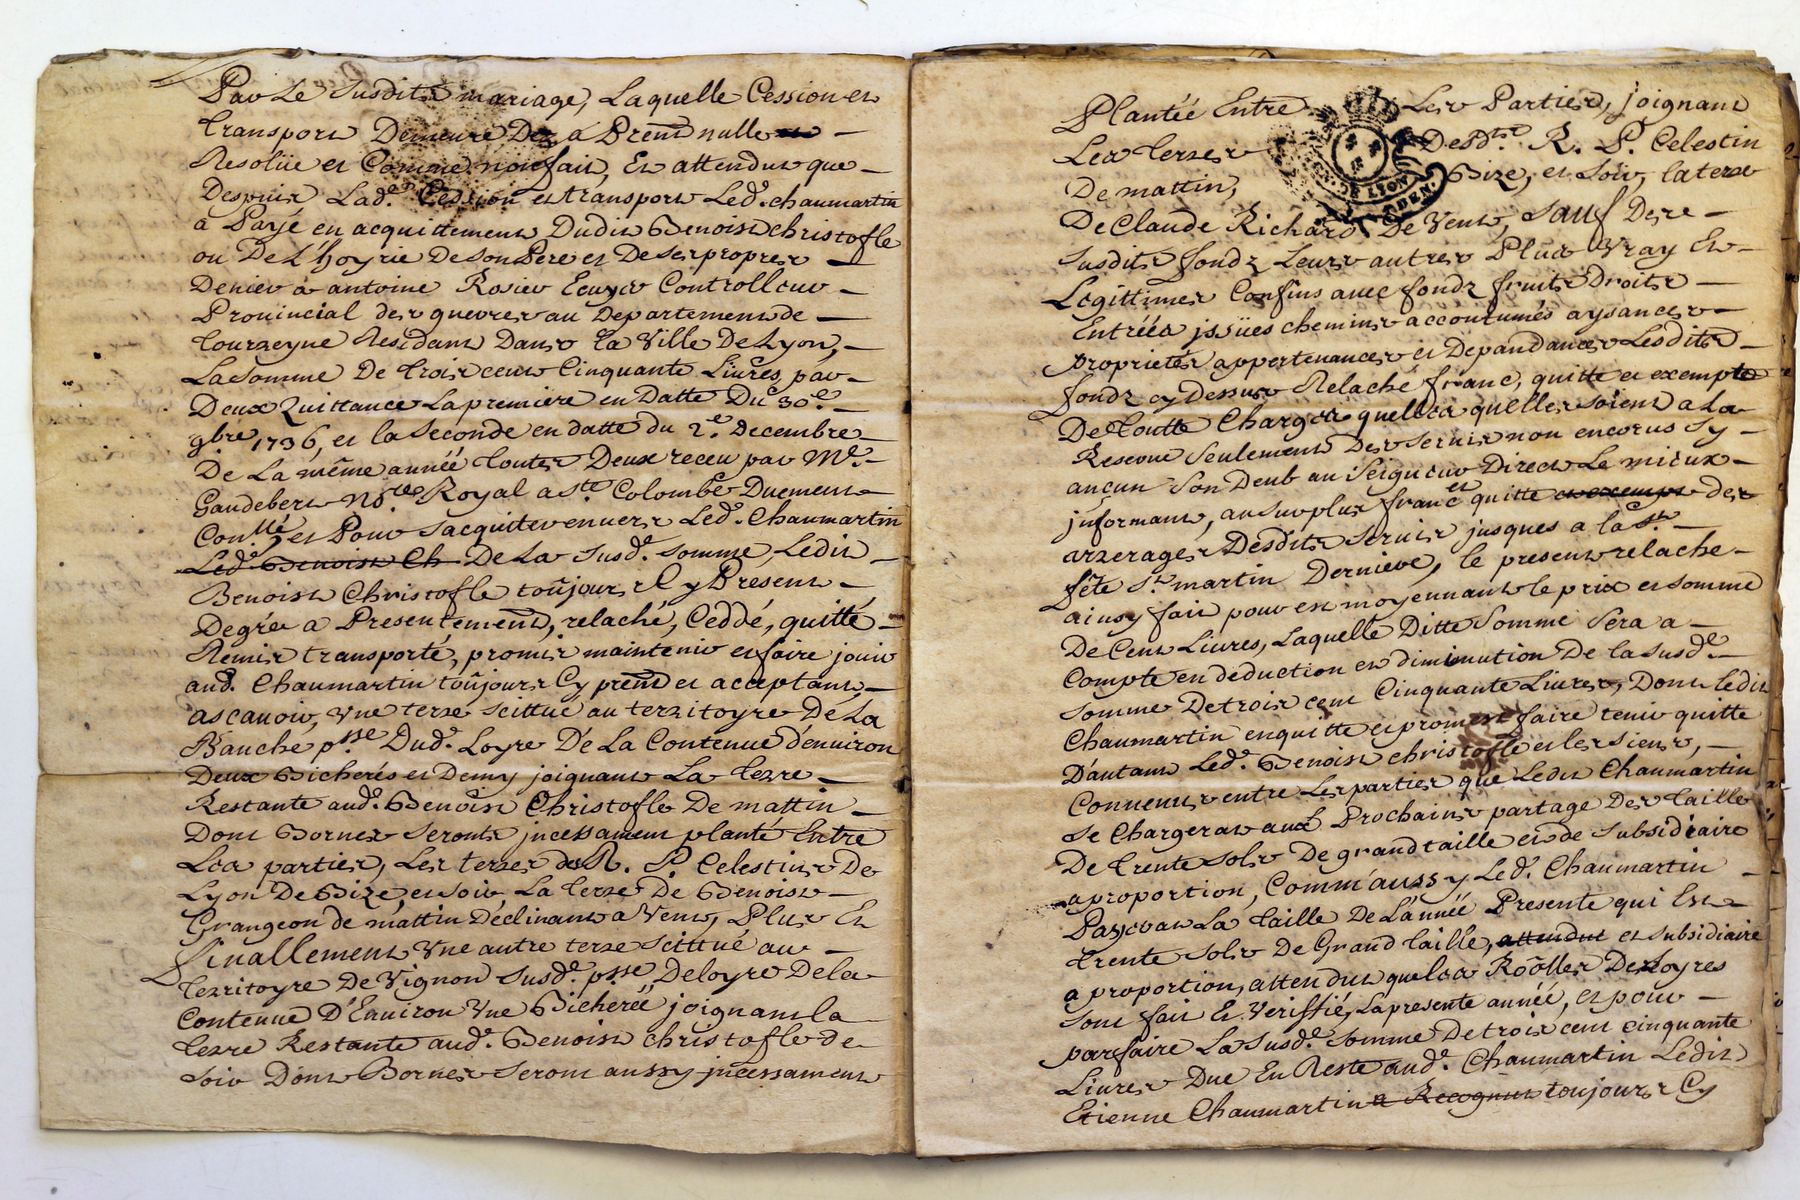 Par Le Susdits mariage, Laquelle Cession et
transport Demeure Dez a Preñt nulle
Resolüe et Comme non fait, Et attendut que
Despuis Lad.e Cession et transport Led. chaumartin
a Payé en acquittement Dudit Benoist christofle
ou De L'hoyrie De son Pere et De ses propres
Denier à antoine Rosier Ecuyer Controlleur
Prouincial des guerres au Departement de
Residant Dans la Ville De Lyon,
La somme De trois cent Cinquante Liures, par
Deux Quittance La premiere en Datte Du 30.e
9bre 1736, et la Seconde en datte du 2.e Decembre
De La même année toutes Deux receu par M.e
Gaudebert No.re Royal a S.te Colombe Duement
Con.llé, et Pour sacquiter enuers Led. Chaumartin
Led. Benoist Ch De La susd.e somme, Ledit
Benoist Christofle toûjours Cy Present
Degrée a Presentement, relaché, Ceddé, quitté
Remis transporté, promis maintenir et faire jouir
aud. Chaumartin toûjours Cy preñt et acceptant,
ascauoir, Vne terre scittué au territoyre De La
Bauche p.sse Dud. Loyre De La Contenue d'enuiron
Deux Bicherés et Demy joignant La terre
Restante aud. Benoist Christofle De mattin
Dont Bornes seronts jncessament planté Entre
Les parties, Les terres des R. P. Celestins De
Lyon De Bize, et soir La terre De Benoist
Grangeon de mattin Déclinant a Vent, Plus Et
finallement Vne autre terre scittué au
territoyre De Vignon susd.e p.sse De loyre De la
Contenue D'Enuiron Vne Bicheréé joignant la
terre Restante aud. Benoist christofle de
soir Dont Bornes seront aussy jncessament
Plantéé Entre Les Parties, joignant
Les terres Desd.ts R. P. Celestin
De mattin, Bize, et soir, la terre
De Claude Richard De Vent, sauf Des
susdits fondz Leurs autres Plus Vray Et
Legittimes Confins auec fondz fruits Droits
Entréés jssües chemins accoutumés aysances
proprietés appertenances et Dependances Lesdits
fondz cy Dessus Relaché franc, quitte et exempte
De toutte Charges quelles quelles soient a La
Reserue seulement Des seruis non encorus sy
aucun son Deub au Seigneur Direct Le mieux
jnformant, au surplus franc et quitte et exempt des
arrerages Desdits seruis jusques a la S.t
fête S.t martin Derniere, le present relache
ainsy fait pour et moyennant le prix et somme
De Cent Liures, Laquelle Ditte Somme Sera a
Compte en deduction et diminution De la susd.e
somme De trois cent Cinquante Liures, Dont ledit
Chaumartin en quitte et promest faire tenir quitte
D'autant Led. Benoist christofle et les siens,
Conuenu entre Les parties que Ledit Chaumartin
se Chargerat aux Prochains partage Des taille
De trente sols De grand taille et de subsidiaire
a proportion, Comm'aussy Led. Chaumartin
Payerat La taille De L'annéé Presente qui Est
trente sols De Grand taille, attendut et subsidiaire
a proportion, attendut que les Rôolles De Loyres
sont fait Et Veriffié, La presente annéé, et pour
parfaire La susd.e somme De trois cent cinquante
Liures Due En Reste aud.e Chaumartin Ledit
Etienne Chaumartin a Recognut toujours Cy